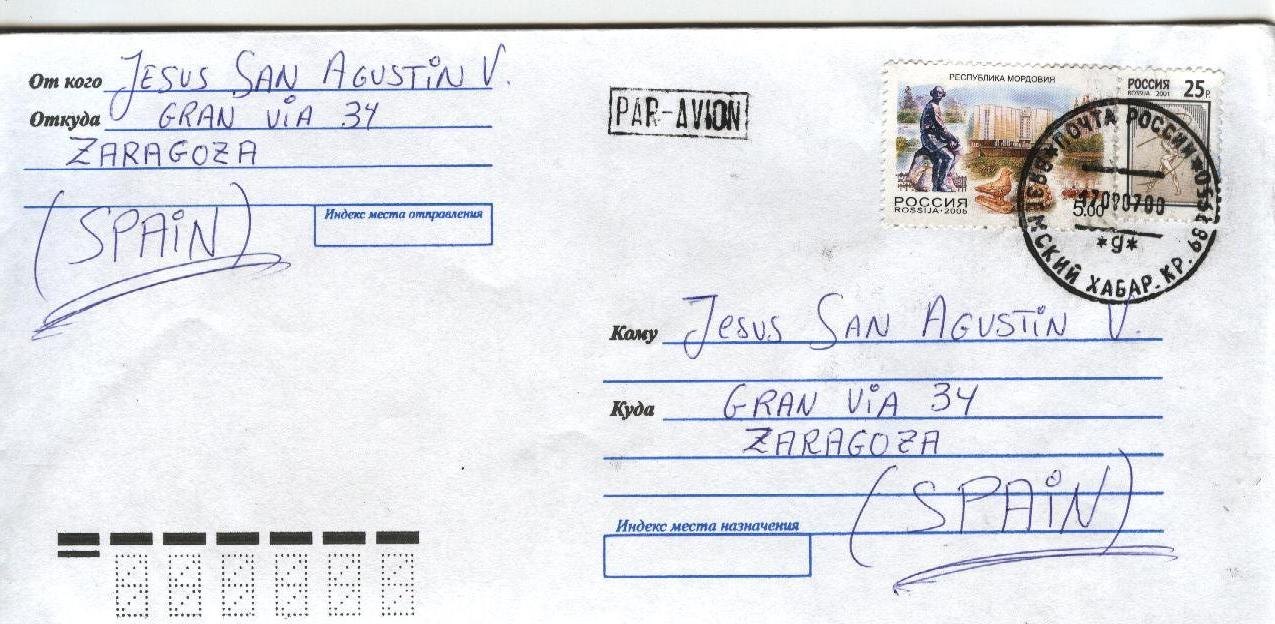 От кого JESUS SAN AGUSTIN V.
Откуда GRAN VIA 34
ZARAGOZA
(SPAIN)
Индекс места отправления
PAR-AVION
РЕСПУБЛИКА МОРДОВИЯ
РОССИЯ
ROSSIJA•2006
5.00
РОССИЯ 25Р.
ROSSIJA 2001
ПОЧТА РОССИИ
СКИЙ ХАБАР. КР.
*g*
Кому JESUS SAN AGUSTIN V.
Куда GRAN VIA 34
ZARAGOZA
(SPAIN)
Индекс места назначения